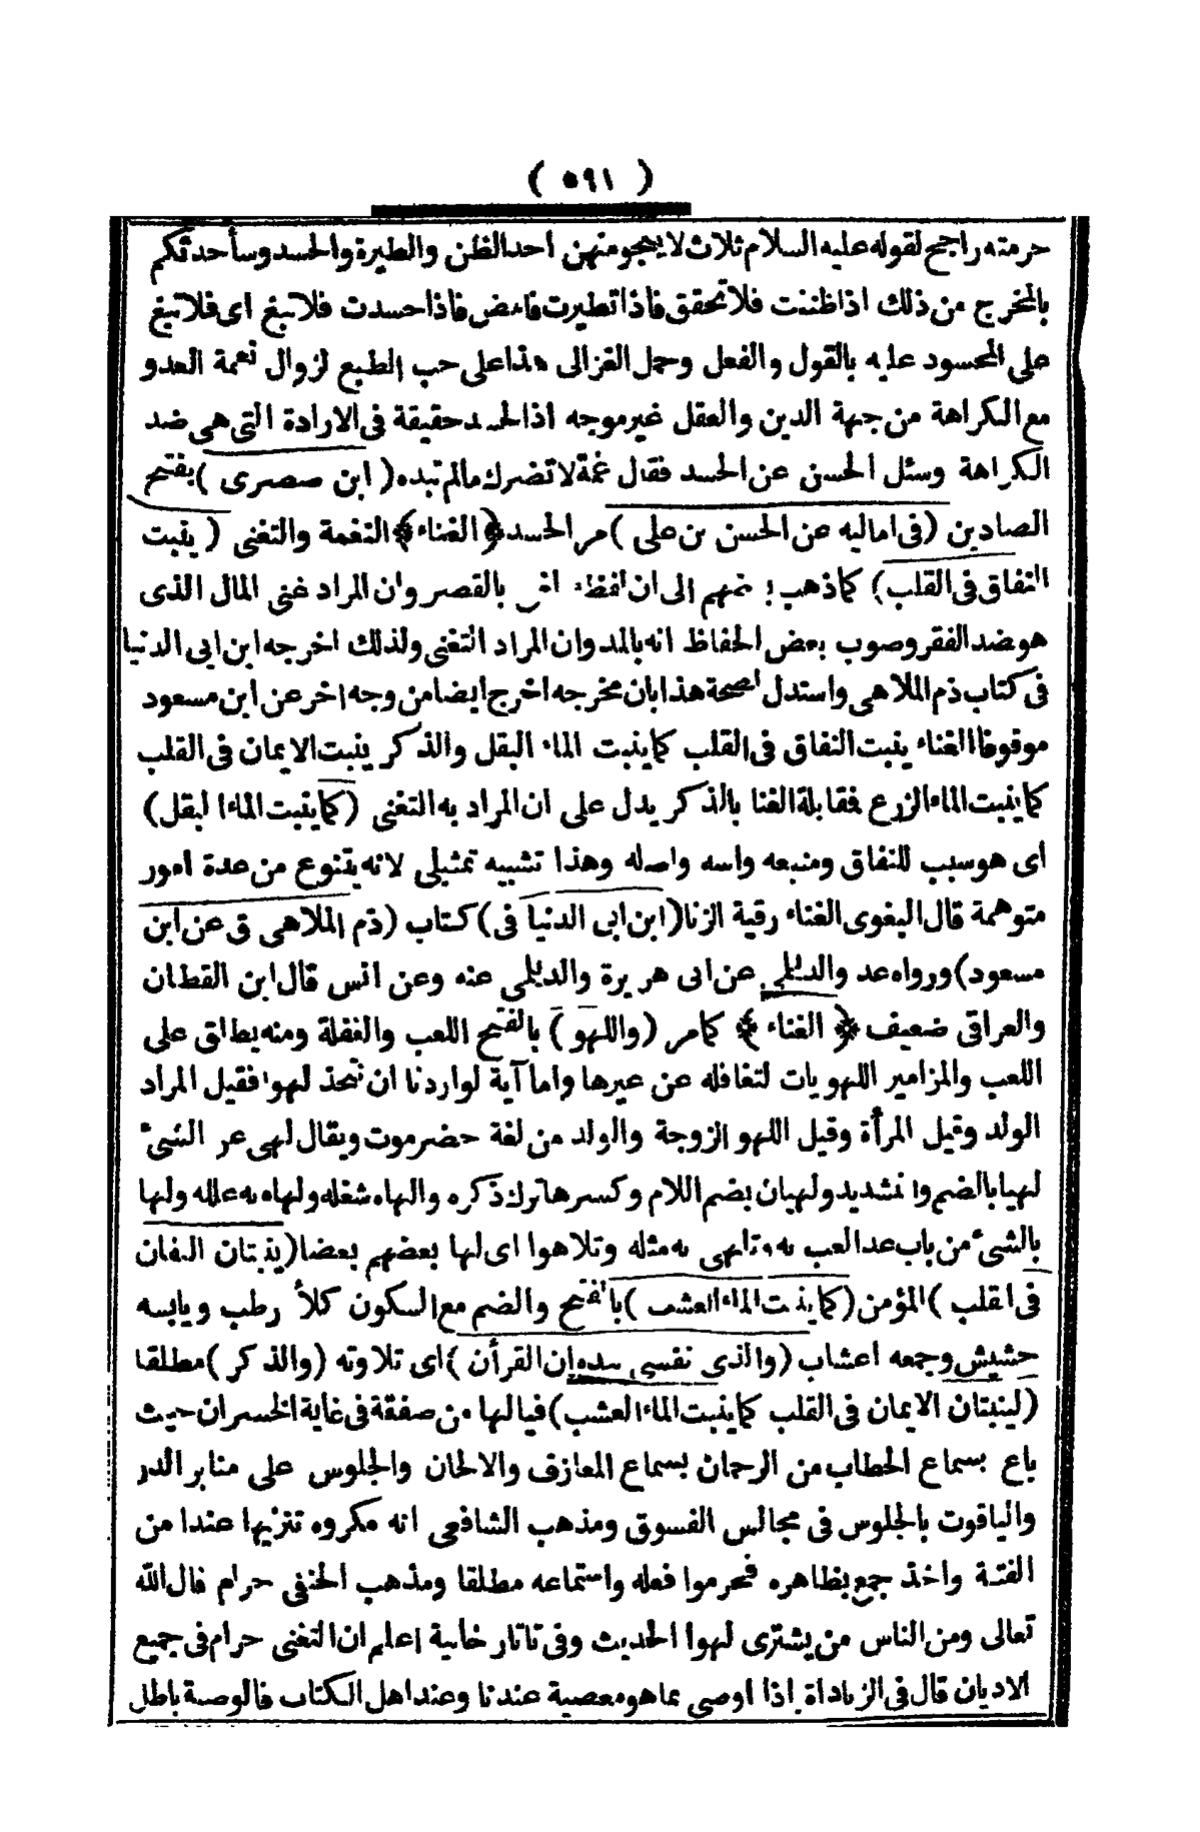 ( ٥٩١ )
حرمته راجح لقوله عليه السلام ثلاث لا ينجو منهن احد الظن والطيرة والحسد وسأحدثكم
بالمخرج من ذلك اذا ظننت فلا تحقق فاذا تطيرت فامض فاذا حسدت فلا تبغ اى فلا تبغ
على المحسود عليه بالقول والفعل وحمل الغزالى هذا على حب الطبع لزوال نعمة العدو
مع الكراهة من جهة الدين والعقل غير موجه اذ الحسد حقيقة فى الارادة التى هى ضد
الكراهة وسئل الحسن عن الحسد فقال غمة لا تضرك مالم تبده ( ابن صصرى ) بفتح
الصادين (فى اماليه عن الحسن بن على ) مر الحسد ﴿ الغناء ﴾ النغمة والتغنى ( ينبت
النفاق فى القلب) كما ذهب بعضهم الى ان لفظه بالقصر وان المراد غنى المال الذى
هو ضد الفقر وصوب بعض الحفاظ انه بالمد وان المراد التغنى ولذلك اخرجه ابن ابى الدنيا
فى كتاب ذم الملاهى واستدل لصحة هذا بان مخرجه اخرج ايضا من وجه اخر عن ابن مسعود
موقوفا الغناء ينبت النفاق فى القلب كما ينبت الماء البقل والذكر ينبت الايمان فى القلب
كما ينبت الماء الزرع فمقابلة الغنا بالذكر يدل على ان المراد به التغنى (كما ينبت الماء البقل)
اى هو سبب للنفاق ومنبعه واسه واصله وهذا تشبيه تمثيلى لانه يتنوع من عدة امور
متوهمة قال البغوى الغناء رقية الزنا (ابن ابى الدنيا فى) كتاب (ذم الملاهى ق عن ابن
مسعود) ورواه عد والديلمى عن ابى هريرة والديلمى عنه وعن انس قال ابن القطان
والعراقى ضعيف ﴿ الغناء ﴾ كما مر (واللهو ) بالفتح اللعب والغفلة ومنه يطلق على
اللعب والمزامير اللهويات لتغافله عن غيرها واما آية لو اردنا ان نتخذ لهوا فقيل المراد
الولد وقيل المرأة وقيل اللهو الزوجة والولد من لغة حضرموت ويقال لهى عن الشئ
لهيا بالضم والتشديد ولهيان بضم اللام وكسرها ترك ذكره والهاه شغله ولهاه به علله ولها
بالشئ من باب عد العب به وتلهى به مثله وتلاهوا اى لها بعضهم بعضا (ينبتان النفاق
فى القلب ) المؤمن (كما ينبت الماء العشب ) بالفتح والضم مع السكون كلأ رطب ويابسه
حشيش وجمعه اعشاب (والذى نفسى بيده ان القرآن ) اى تلاوته (والذكر ) مطلقا
(لينبتان الايمان فى القلب كما ينبت الماء العشب) فيا لها من صفقة فى غاية الخسران حيث
باع بسماع الخطاب من الرحمان بسماع المعازف والالحان والجلوس على منابر الدر
والياقوت بالجلوس فى مجالس الفسوق ومذهب الشافعى انه مكروه تنزيها عندا من
الفتنة واخذ جمع بظاهره فحرموا فعله واستماعه مطلقا ومذهب الحنفى حرام قال الله
تعالى ومن الناس من يشترى لهوا الحديث وفى تاتار خانية اعلم ان التغنى حرام فى جميع
الاديان قال فى الزيادات اذا اوصى بما هو معصية عندنا وعند اهل الكتاب فالوصية باطل